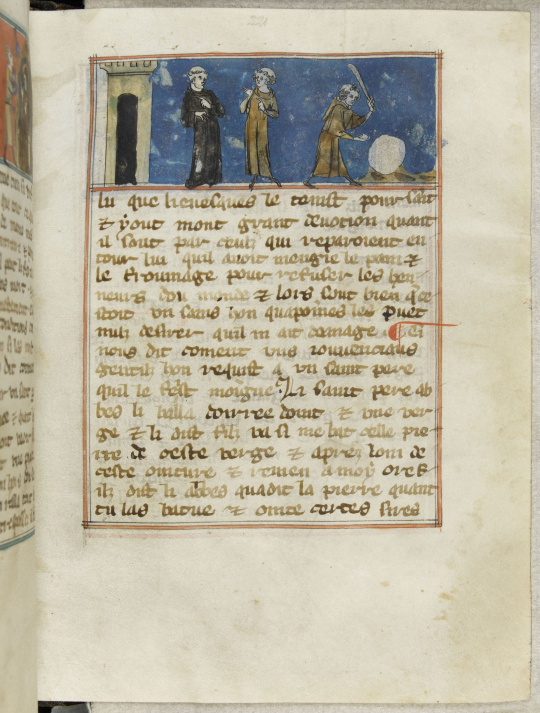 221
lu que lievesques le tenist pour saint
⁊ y out mont grant devotion quant
il sout par ceuls qui reparoient en
tour lui quil avoit mengie le pain ⁊
le froumage pour refuser les hon
neurs dou monde ⁊ lors sout bien que
estoit un sains hon quapoines les puet
nuls destrer quil ni ait damage Ci
nous dit coment uns jouvenciaus
gentils hon requist a un saint pere
quil le feist moigne Li saint pere ab
bes li bailla coirree doint ⁊ une ver
ge ⁊ li dist fils va si me bat celle pie
rre de ceste verge ⁊ apres loin de
ceste ointure ⁊ revien a moy ores
ils dist li abbes quadit la pierre quant
tu las batue ⁊ ointe certes sires